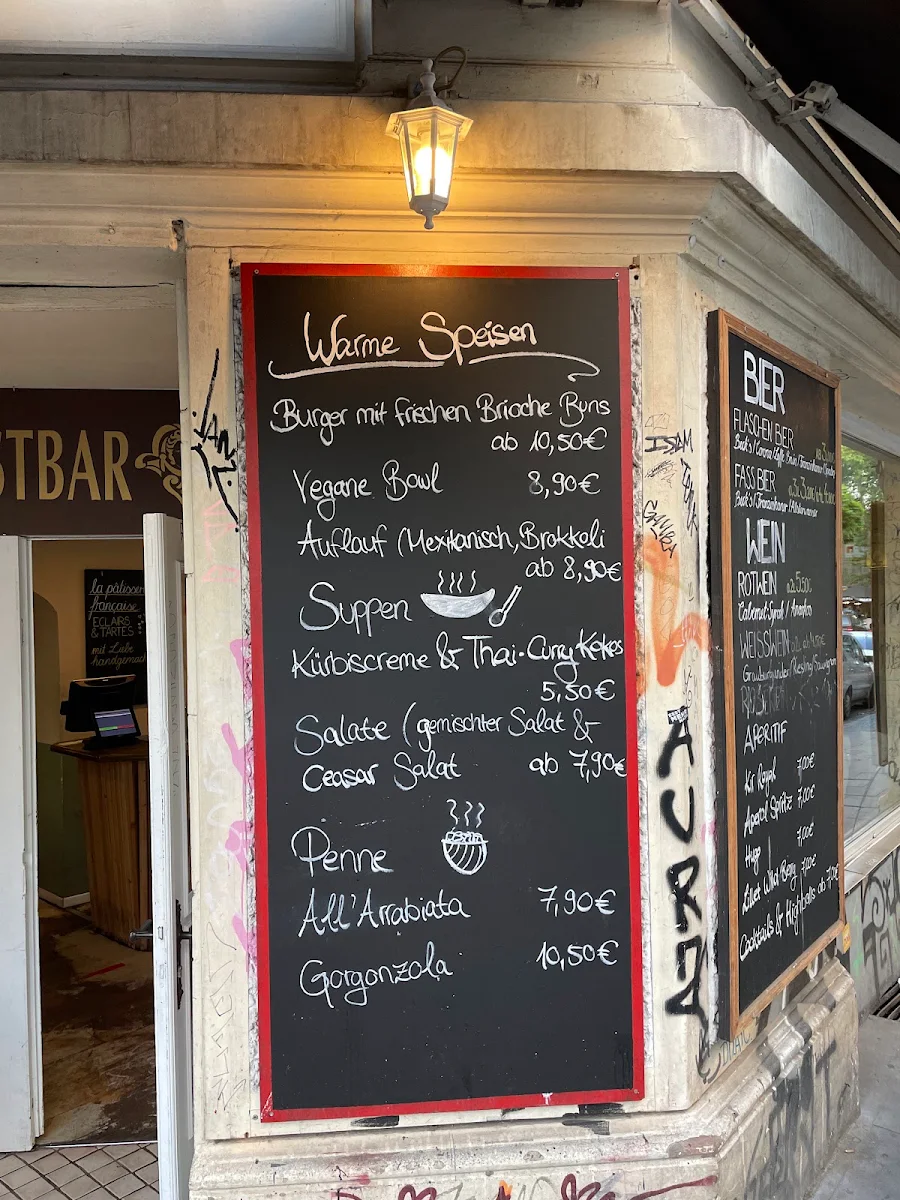 Warme Speisen
Burger mit frischen Brioche Buns
ab 10,50€
Vegane Bowl 8,90€
Auflauf (Mexikanisch, Brokkoli
ab 8,90€
Suppen
Kürbiscreme & Thai-Curry Kokos
5,50€
Salate (gemischter Salat &
Ceasar Salat ab 7,90€
Penne
All'Arrabiata 7,90€
Gorgonzola 10,50€
BIER
FLASCHEN BIER
FASS BIER
WEIN
ROTWEIN
WEISSWEIN
APERITIF
Kir Royal 7,00€
Aperol Spritz 7,00€
Hugo 7,00€
Lillet Wild Berry 7,00€
Cocktails & Highballs ab 7,00€
STBAR
la pâtisserie
française
ECLAIRS
& TARTES
mit Liebe
handgemacht
JAN
ISAM
AURA